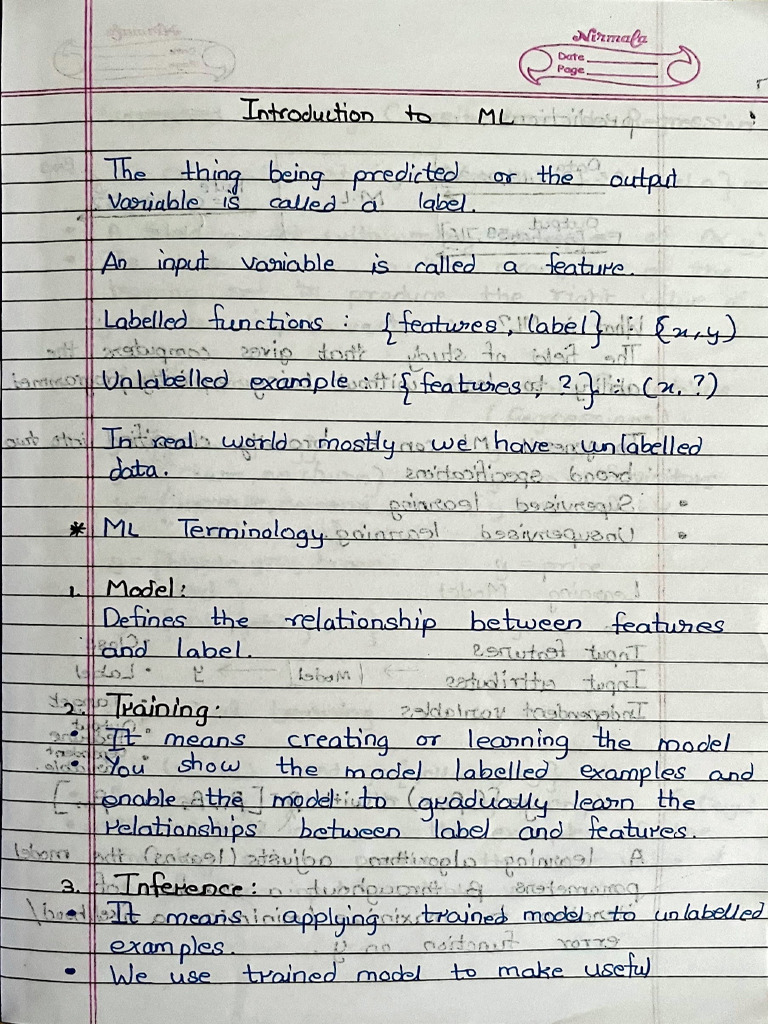 Nirmala
Date
Page
Introduction to ML
The thing being predicted or the output
variable is called a label.
An input variable is called a feature.
Labelled functions : {features, label} : (x, y)
Unlabelled example : {features, ?} : (x, ?)
In real world mostly we have unlabelled
data.
* ML Terminology
1. Model:
Defines the relationship between features
and label.
2. Training:
• It means creating or learning the model
• You show the model labelled examples and
enable the model to gradually learn the
relationships between label and features.
3. Inference:
• It means applying trained model to unlabelled
examples.
• We use trained model to make useful